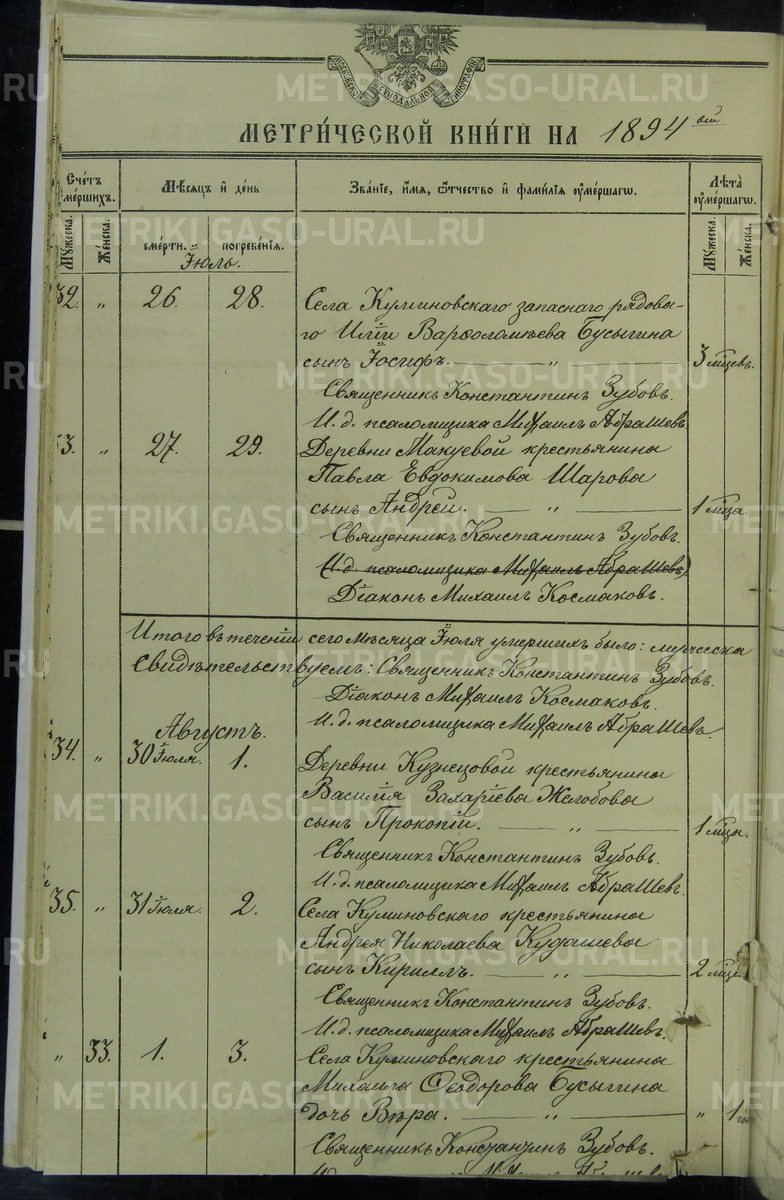 МОСКОВСКОЙ СУНОДАЛЬНОЙ ТИПОГРАФІИ
METRIKI.GASO-URAL.RU
МЕТРИ́ЧЕСКОЙ КНИ́ГИ НА 1894 ой
Сче́тъ ᲂу҆ме́ршихъ.
Мѣ́сяцъ и҆ де́нь
Зва́нїе, и҆́мя, ѻ҆́тчество и҆ фами́лїя ᲂу҆ме́ршагѡ.
Лѣ́та ᲂу҆ме́ршагѡ.
Мꙋ́жеска. Же́нска.
сме́рти. погребе́нїя.
Мꙋ́жеска. Же́нска.
Іюль.
32. „ 26. 28. Села Куминовскаго запаснаго рядова-
го Иліи Варѳоломѣева Бусыгина
сынъ Іосифъ. — „ — 3 мѣцевъ.
Священникъ Константинъ Зубовъ.
И. д. псаломщика Михаилъ Абрашевъ.
33. „ 27. 29. Деревни Макуевой крестьянина
Павла Евдокимова Шарова
сынъ Андрей. — „ — 1 мѣца
Священникъ Константинъ Зубовъ.
(И. д. псаломщика Михаилъ Абрашевъ)
Діаконъ Михаилъ Космаковъ.
Итого въ теченіи сего мѣсяца Іюля умершихъ было: мужеска
Свидѣтельствуемъ: Священникъ Константинъ Зубовъ.
Діаконъ Михаилъ Космаковъ.
И. д. псаломщика Михаилъ Абрашевъ.
Августъ.
34. „ 30 Іюля. 1. Деревни Кузнецовой крестьянина
Василія Захаріева Желобова
сынъ Прокопій. — „ — 1 мѣца.
Священникъ Константинъ Зубовъ.
И. д. псаломщика Михаилъ Абрашевъ.
35. „ 31 Іюля. 2. Села Куминовскаго крестьянина
Андрея Николаева Кудашева
сынъ Кириллъ. — „ — 2 мѣце
Священникъ Константинъ Зубовъ.
И. д. псаломщика Михаилъ Абрашевъ.
„ 33. 1. 3. Села Куминовскаго крестьянина
Михаила Ѳеодорова Бусыгина
дочь Вѣра. — „ — „ 1 год
Священникъ Константинъ Зубовъ.